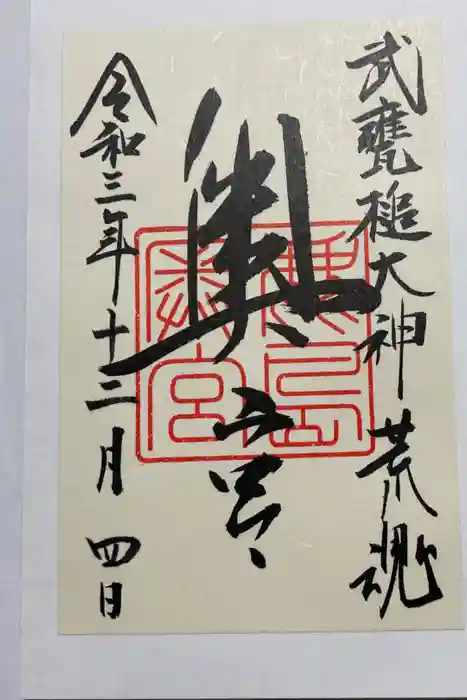 武甕槌大神荒魂
奥宮
鹿島
奥宮
令和三年十二月四日